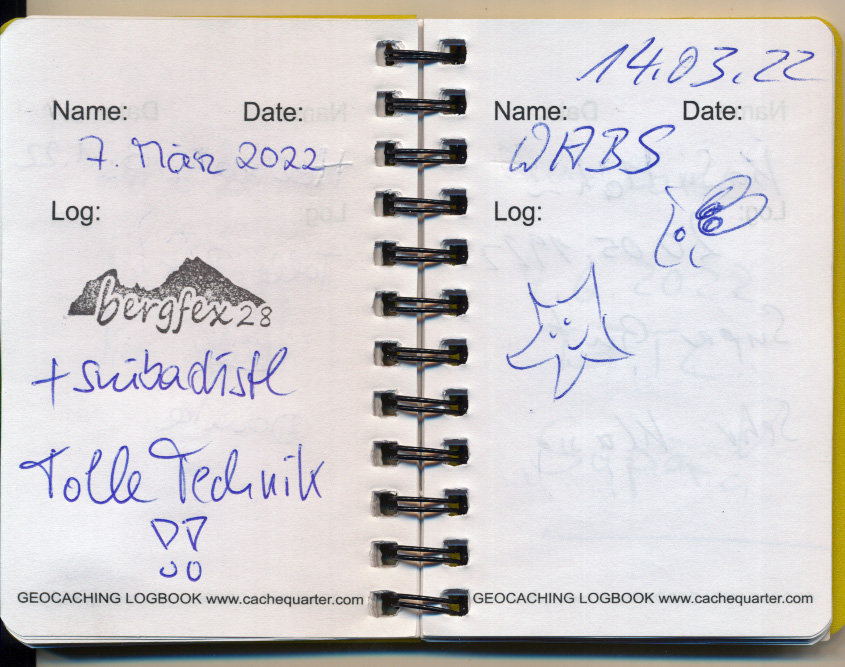 Name: Date:
7. März 2022
Log:
bergfex28
Tolle Technik
!!
GEOCACHING LOGBOOK www.cachequarter.com
14.03.22
Name: Date:
WABS
Log:
GEOCACHING LOGBOOK www.cachequarter.com